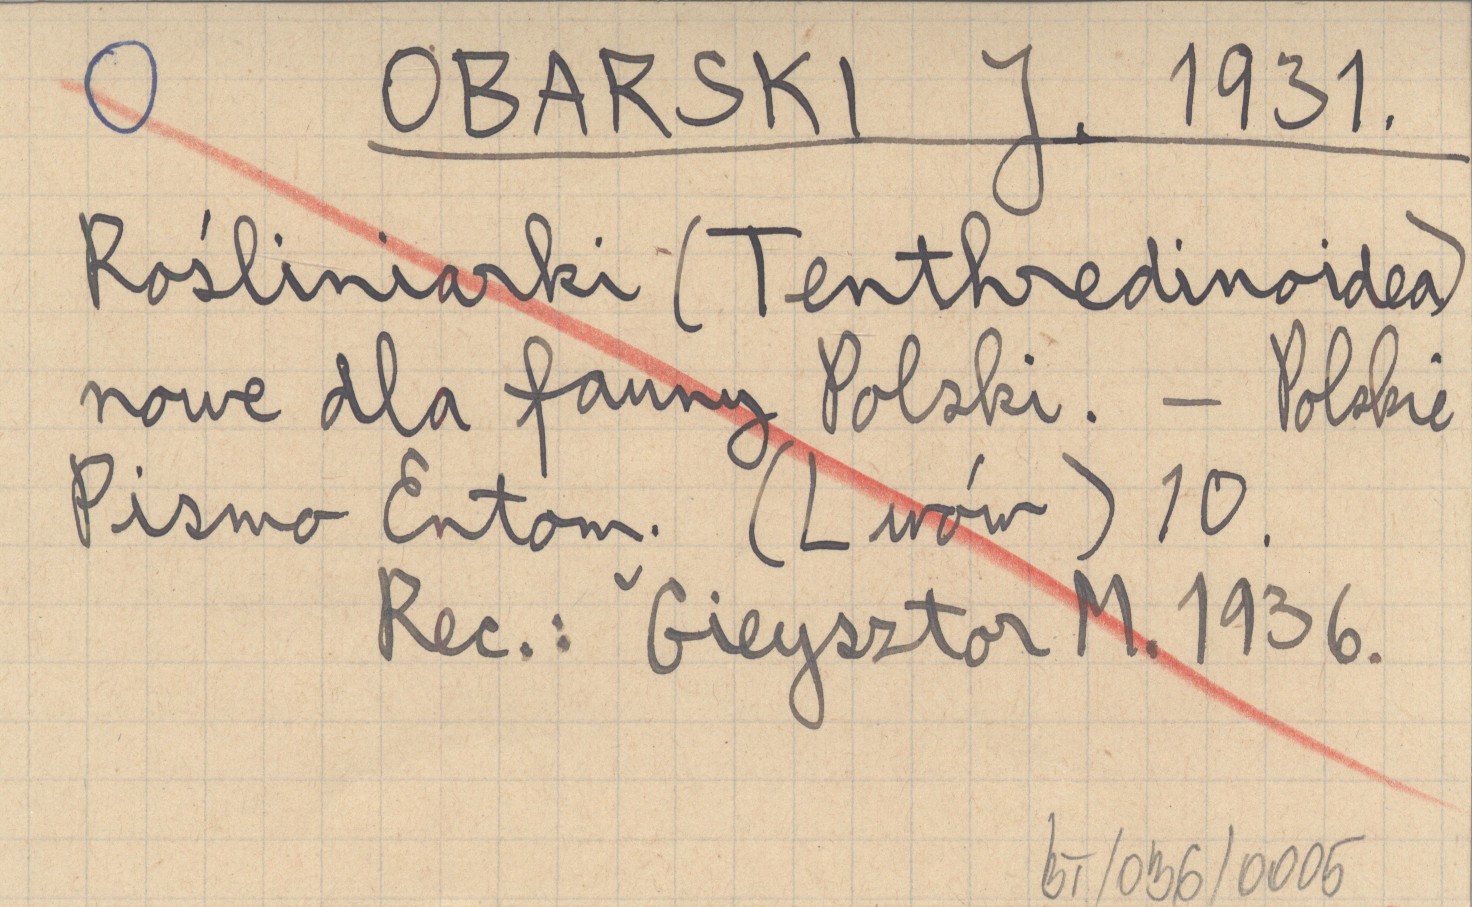 O OBARSKI J. 1931.
Rośliniarki (Tenthredinoidea)
nowe dla fauny Polski. — Polskie
Pismo Entom. (Lwów) 10.
Rec.: ˇGieysztor M. 1936.
BT/036/0005